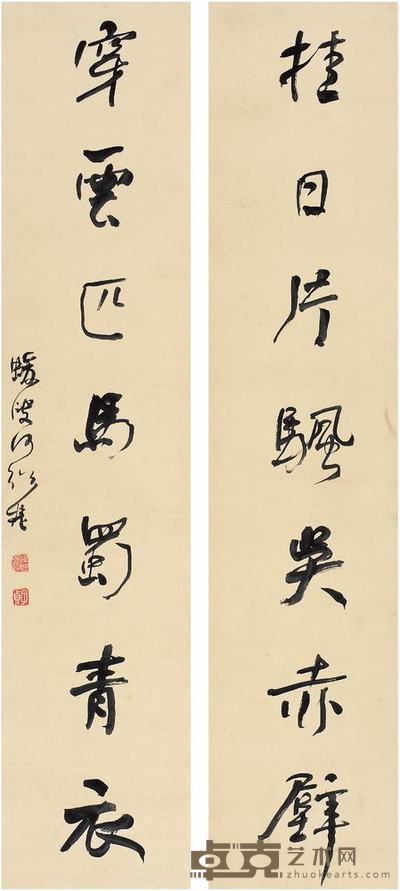 挂日片颿吳赤壁
穿雲匹馬蜀青衣
蝯叟何紹基
卓克艺术网
zhuokearts.com